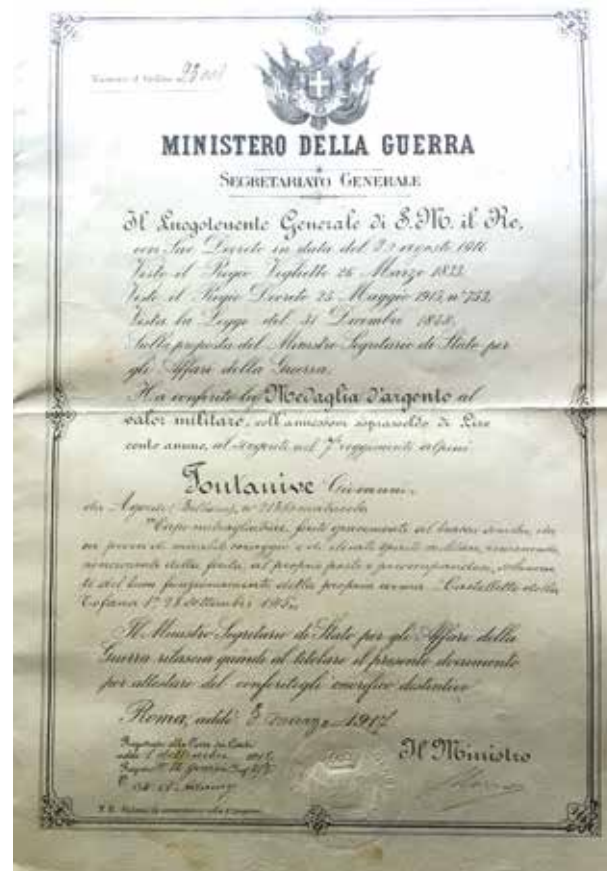 MINISTERO DELLA GUERRA
SEGRETARIATO GENERALE
Il Luogotenente Generale di S.M. il Re,
con Suo Decreto in data del agosto 1916
Visto il Regio Viglietto 26 Marzo 1833,
Visto il Regio Decreto 25 Maggio 1915, n° 753,
Vista la Legge del 31 Dicembre 1848,
Sulla proposta del Ministro Segretario di Stato per
gli Affari della Guerra,
Ha conferito la Medaglia d'argento al
valor militare, coll'annessovi soprassoldo di Lire
cento annue, al sergente nel 7° reggimento alpini
Fontanive Giovanni
da Agordo (Belluno), n°
Capo mitragliatrice, ferito al braccio
prova di mirabile coraggio e di elevato spirito militare, rimanendo,
noncurante della ferita, al proprio posto e preoccupandosi
del buon funzionamento della propria arma. Castelletto della
Tofana 1ª, settembre 1915.
Il Ministro Segretario di Stato per gli Affari della
Guerra rilascia quindi al titolare il presente documento
per attestare del conferitogli onorifico distintivo
Roma, addì 3 marzo 1917
Registrato alla Corte dei Conti
Il Ministro